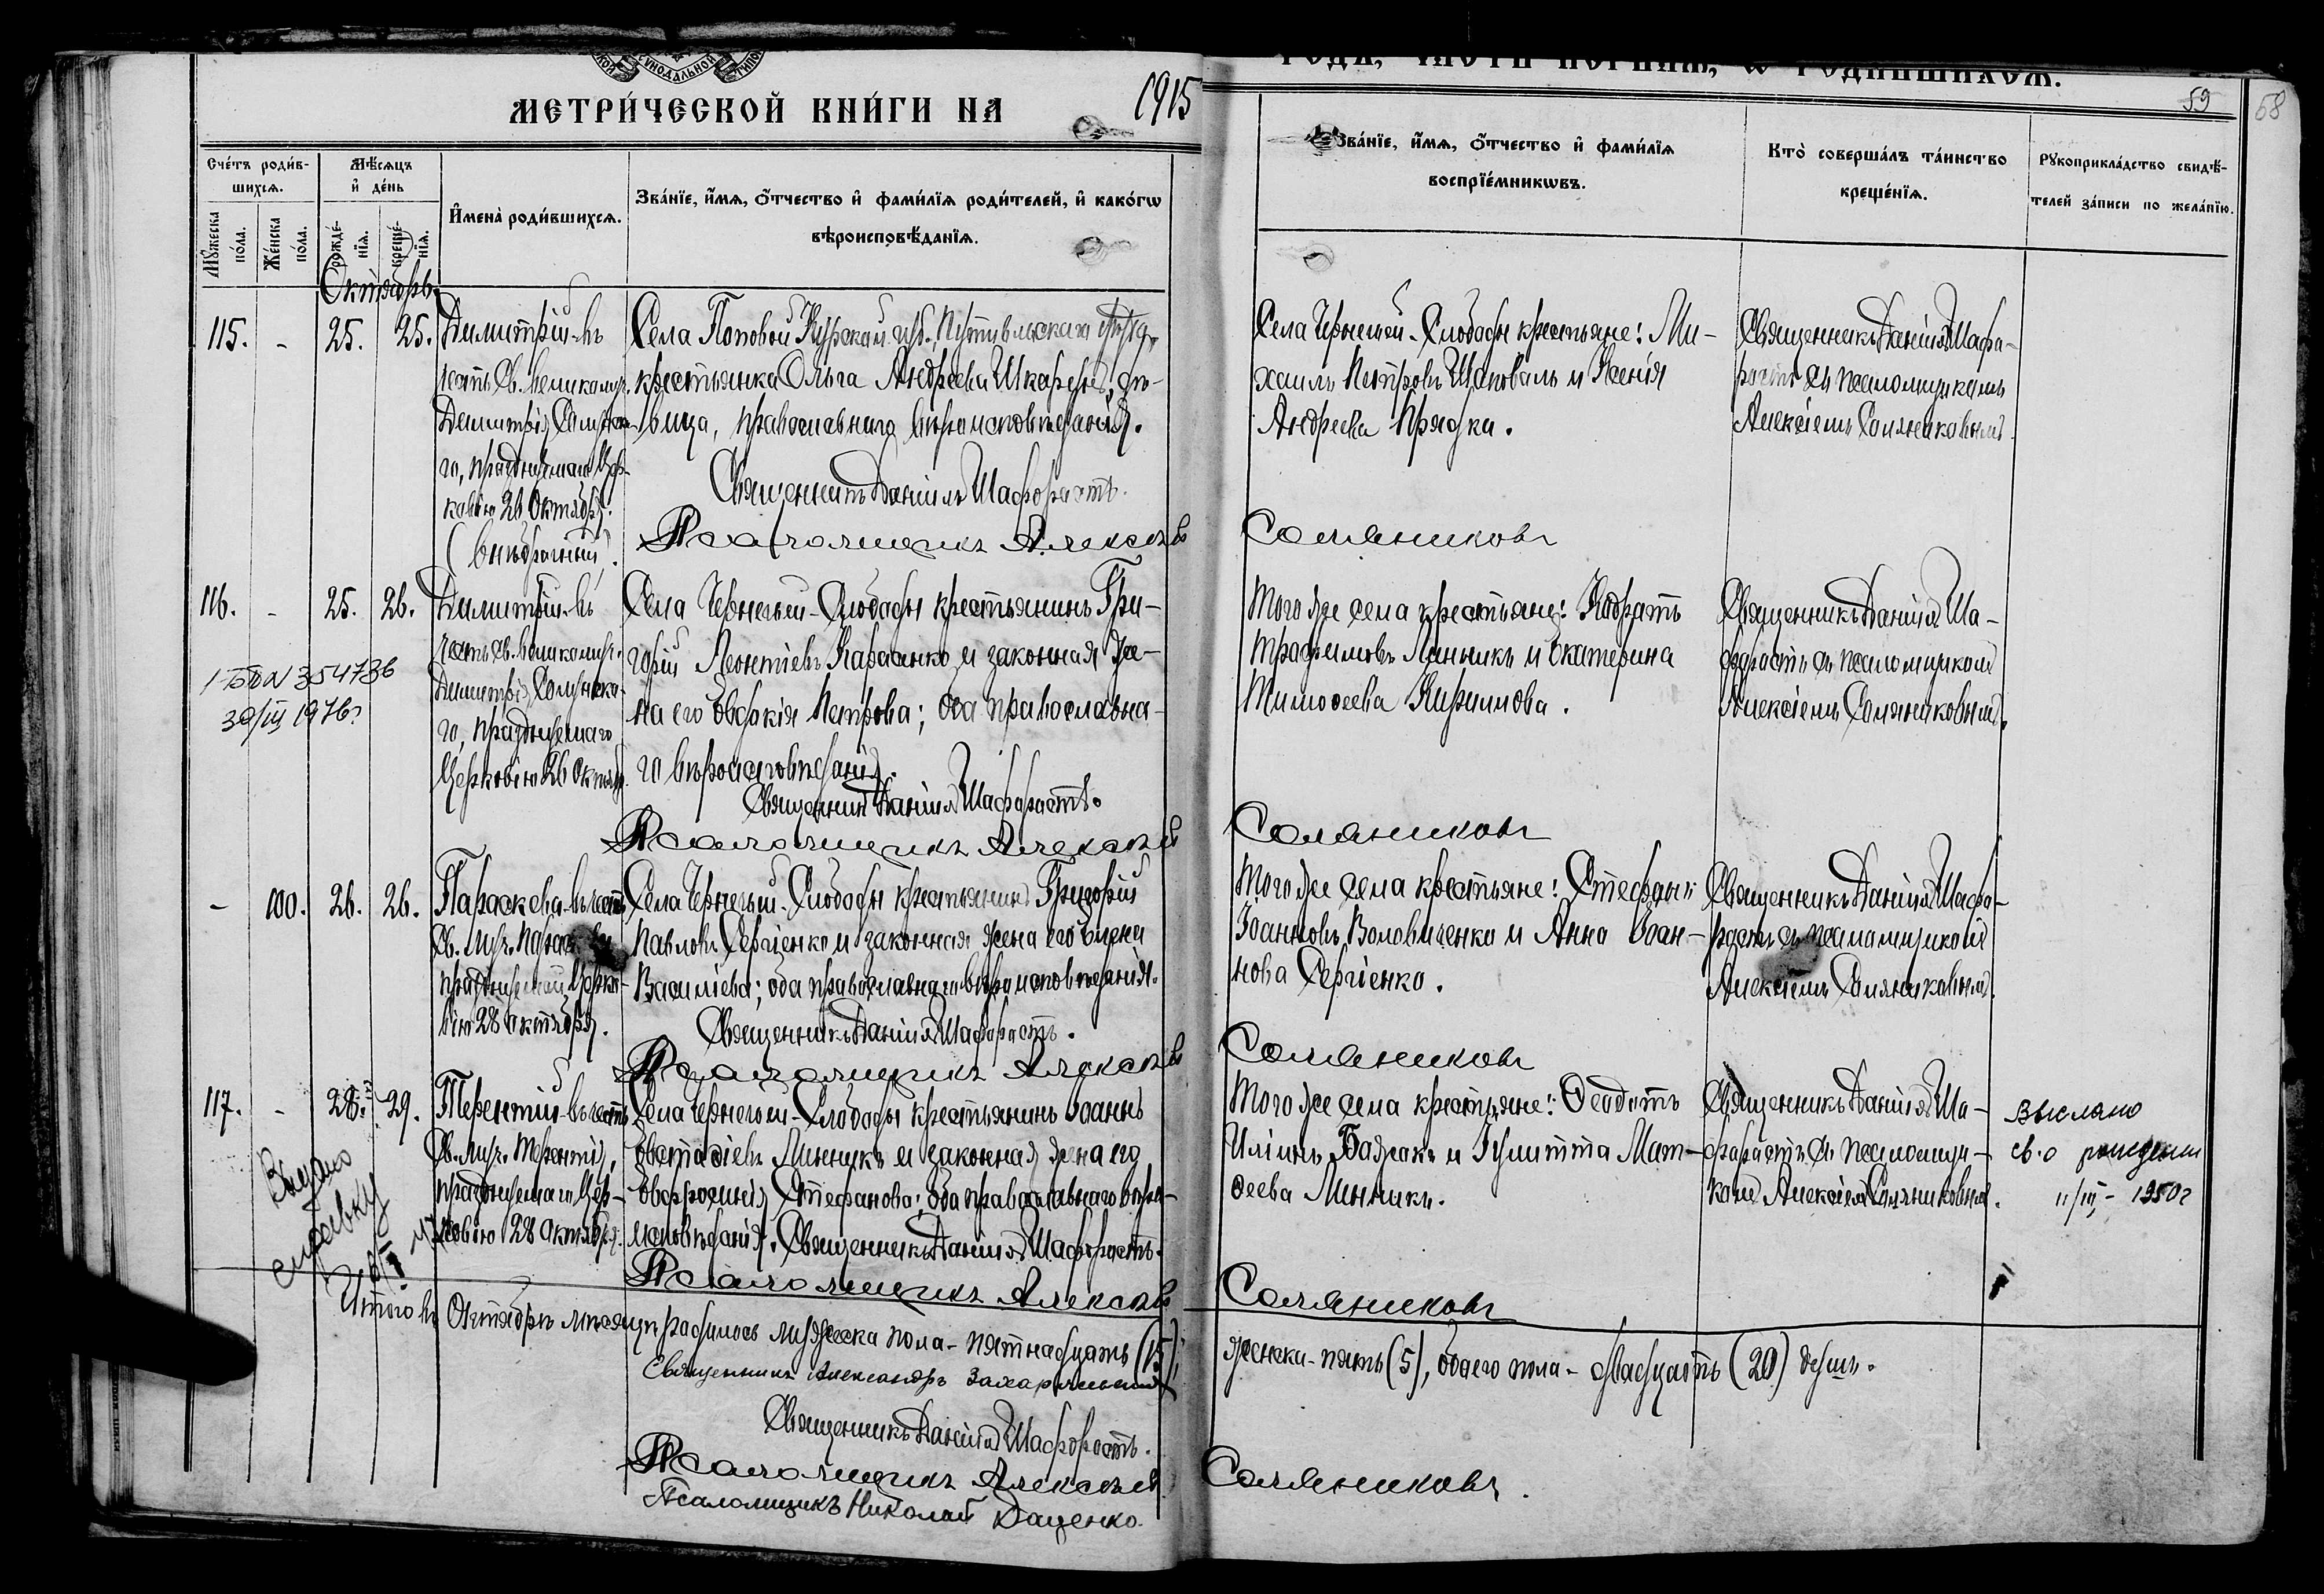 СУНОДАЛЬНОЙ
МЕТРИ́ЧЕСКОЙ КНИ́ГИ НА 1915
59
68
Сче́тъ роди́в-
шихсѧ.
Мѣ́сѧцъ
и҆ де́нь
И҆мена̀ роди́вшихсѧ.
Зва́нїе, и҆́мѧ, ѻ҆́тчество и҆ фами́лїѧ роди́телей, и҆ како́гѡ
вѣроисповѣ́данїѧ.
Мꙋ́жеска
по́ла.
Же́нска
по́ла.
рожде́-
нїѧ.
креще́-
нїѧ.
Зва́нїе, и҆́мѧ, ѻ҆́тчество и҆ фами́лїѧ
воспрїе́мникѡвъ.
Кто̀ соверша́лъ та́инство
креще́нїѧ.
Рꙋкоприкла́дство свидѣ́-
телей за́писи по жела́нїю.
Октябрь.
115. - 25. 25.
Димитрій-въ
честь Св. великомуч.
Димитрія Солунска-
го, празднуемаго Цер-
ковію 26 Октября.
(внѣбрачный).
Села Поповой Курской губ., Путивльскаго уѣзда,
крестьянка Ольга Андреева, дѣ-
вица, православнаго вѣроисповѣданія.
Священникъ Даніилъ Шафорастъ.
Псаломщикъ Алексѣй Соляниковъ
Села Чернечьей-Слободы крестьяне: Ми-
хаилъ Петровъ Шаповалъ и Ксенія
Андреева Прядка.
Священникъ Даніилъ Шафо-
растъ съ псаломщикомъ
Алексіемъ Соляниковымъ.
116. - 25. 26.
354736
30/III 1976г
Димитрій-въ
честь св. великомуч.
Димитрія Солунска-
го, празднуемаго
Церковію 26 Октяб.
Села Чернечьей-Слободы крестьянинъ Гри-
горій Леонтіевъ и законная же-
на его Евдокія Петрова; оба православна-
го вѣроисповѣданія.
Священникъ Даніилъ Шафорастъ.
Псаломщикъ Алексѣй Соляниковъ
Того же села крестьяне: Кодратъ
Трофимовъ Линникъ и Екатерина
Тимоѳеева.
Священникъ Даніилъ Ша-
форастъ съ псаломщикомъ
Алексіемъ Соляниковымъ.
- 100. 26. 26.
Параскева-въ честь
Св. Муч. Параскевы
празднуемой Церко-
вію 28 Октября.
Села Чернечьей-Слободы крестьянинъ Григорій
Павловъ Сергіенко и законная жена его Елена
Василіева; оба православнаго вѣроисповѣданія.
Священникъ Даніилъ Шафорастъ.
Псаломщикъ Алексѣй Соляниковъ
Того же села крестьяне: Стефанъ
Іоанновъ Воловиченко и Анна Іоан-
нова Сергіенко.
Священникъ Даніилъ Шафо-
растъ съ псаломщикомъ
Алексіемъ Соляниковымъ.
117. - 28. 29.
Выдано
справку
Терентій-въ честь
Св. Муч. Терентія,
празднуемаго Цер-
ковію 28 Октября.
Села Чернечьей-Слободы крестьянинъ Іоаннъ
Евстафіевъ Линникъ и законная жена его
Евфросинія Стефанова; оба православнаго вѣро-
исповѣданія. Священникъ Даніилъ Шафорастъ.
Псаломщикъ Алексѣй Соляниковъ
Того же села крестьяне: Ѳеодотъ
Иліинъ и Іулитта Мат-
ѳеева Линникъ.
Священникъ Даніилъ Ша-
форастъ съ псаломщи-
комъ Алексіемъ Соляниковымъ.
выслано
св. о рождении
11/III - 1950г
Итого въ Октябрѣ мѣсяцѣ родилось мужеска пола - пятнадцать (15);
женска - пять (5), обоего пола - двадцать (20) душъ.
Священникъ Александръ
Священникъ Даніилъ Шафорастъ.
Псаломщикъ Алексѣй Соляниковъ.
Псаломщикъ Николай Даценко.